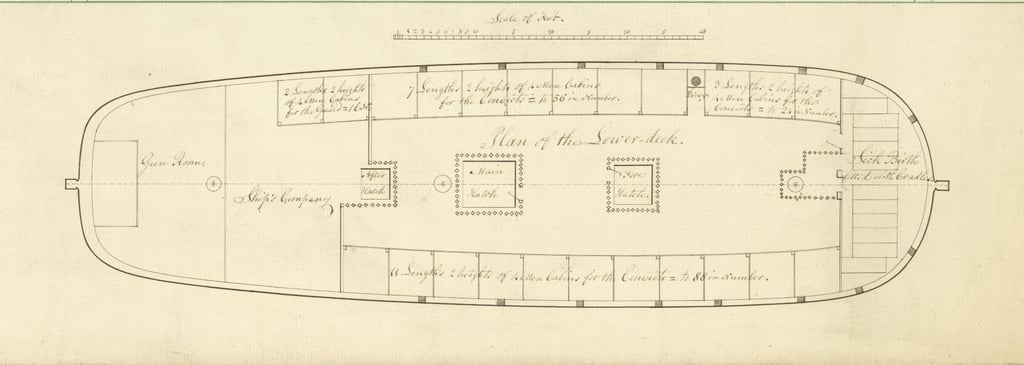 Scale of Feet.
2 Lengths 2 heights
of 4 Men Cabins
for the Guard = 16 in No.
7 Lengths 2 heights of 4 Men Cabins
for the Convicts = to 56 in Number.
Privy
3 Lengths 2 heights of
4 Men Cabins for the
Convicts = to 24 in Number.
Plan of the Lower-deck.
Gun Room
Ship's Company
After
Hatch
Main
Hatch
Fore
Hatch
Sick Birth
fitted with Cradles
11 Lengths 2 heights of 4 Men Cabins for the Convicts = to 88 in Number.